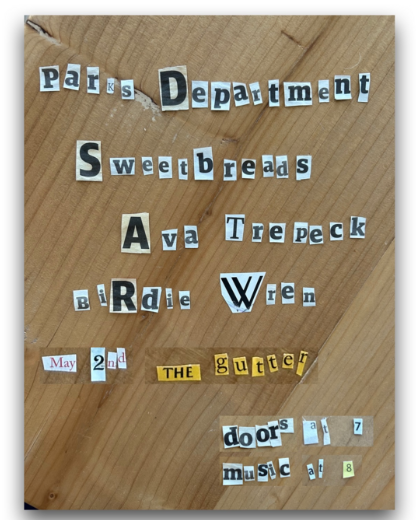 Parks Department
Sweetbreads
Ava Trepeck
BiRdie Wren
May 2nd THE gutter
doors at 7
music at 8